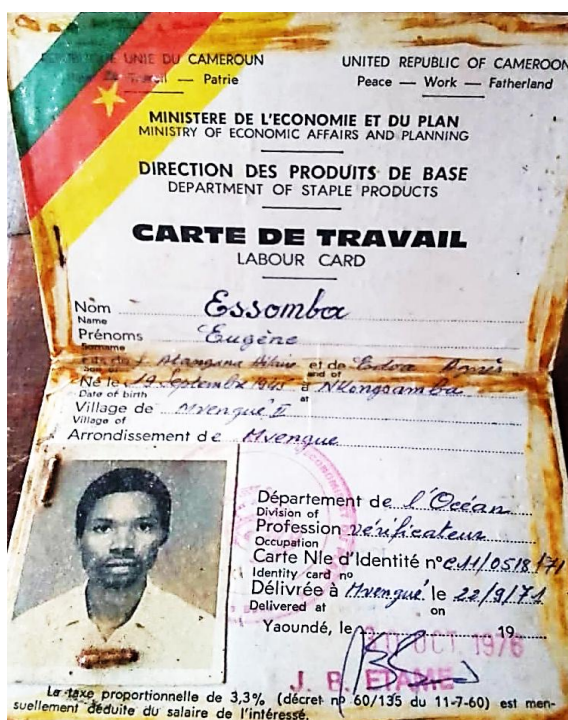 UNIE DU CAMEROUN
Travail — Patrie
UNITED REPUBLIC OF CAMEROON
Peace — Work — Fatherland
MINISTERE DE L'ECONOMIE ET DU PLAN
MINISTRY OF ECONOMIC AFFAIRS AND PLANNING
DIRECTION DES PRODUITS DE BASE
DEPARTMENT OF STAPLE PRODUCTS
CARTE DE TRAVAIL
LABOUR CARD
Nom Essomba
Name
Prénoms Eugène
Surname
Atangana Hilaire et de
and of
Né le 19 Septembre à Nkongsamba
Date of birth at
Village de Mvengue II
Village of
Arrondissement de Mvengue
Département de l'Océan
Division of
Profession vérificateur
Occupation
Carte Nle d'Identité n° C11/0518/71
Identity card no
Délivrée à Mvengué le 22/9/71
Delivered at on
Yaoundé, le OCT. 1976 19
J. B. ETAME
La taxe proportionnelle de 3,3% (décret nº 60/135 du 11-7-60) est men-
suellement déduite du salaire de l'intéressé.